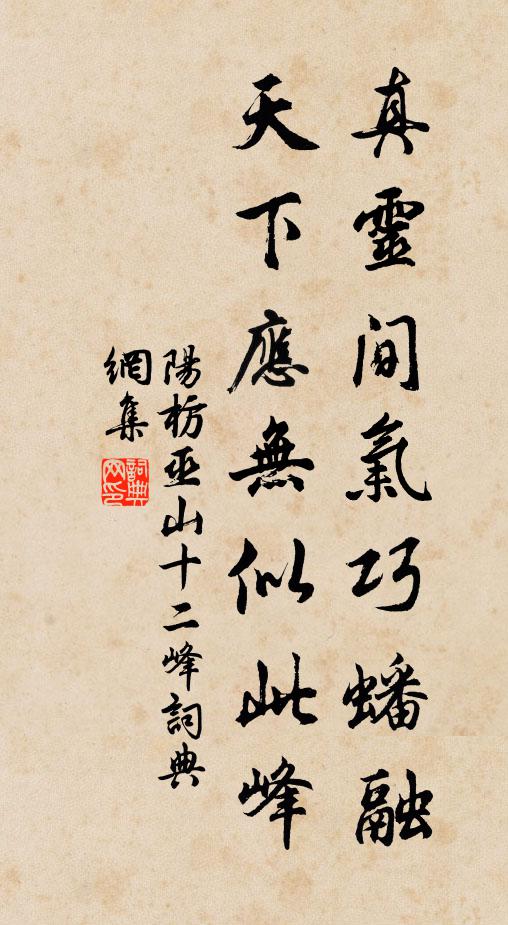 真靈間氣巧蟠融
天下應無似此峰
陽枋巫山十二峰詞典
網集
詞典
网印